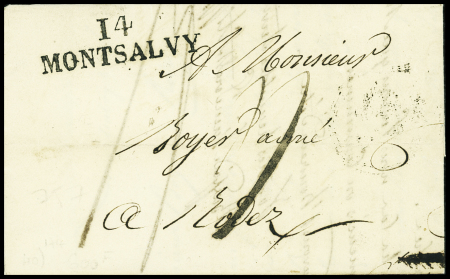 14
MONTSALVY
A Monsieur
Boyer ainé
a Rodez